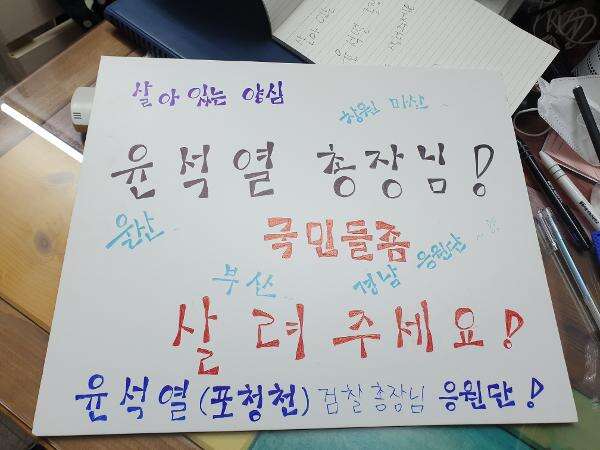 살아 있는 양심
창원 마산
윤석열 총장님!
울산
국민들좀
부산
경남 응원단
살려주세요!
윤석열(포청천) 검찰총장님 응원단!